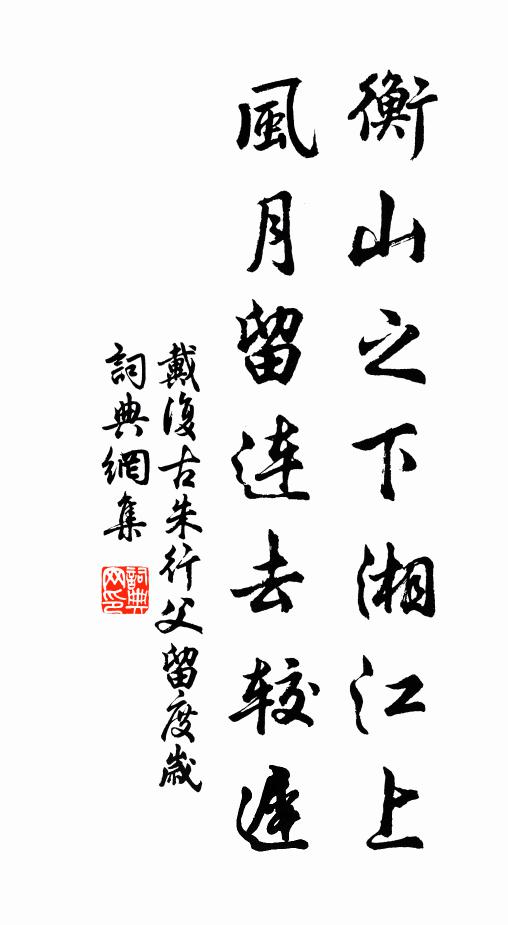 衡山之下湘江上
風月留連去较遲
戴復古朱行父留度歲
詞典網集
詞典网印